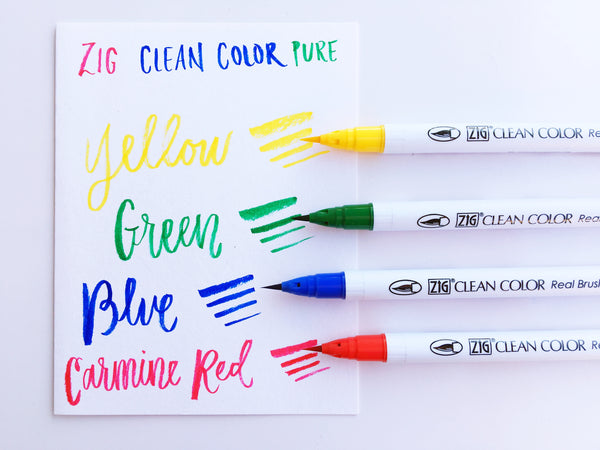 ZIG CLEAN COLOR PURE
Yellow
ZIG® CLEAN COLOR
Green
ZIG® CLEAN COLOR Real
Blue
ZIG® CLEAN COLOR Real Brush
Carmine Red
ZIG® CLEAN COLOR